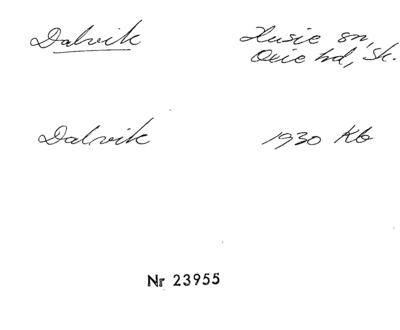 Dalvik Husie sn,
Oxie hd, Sk.
Dalvik 1930 Kb
Nr 23955